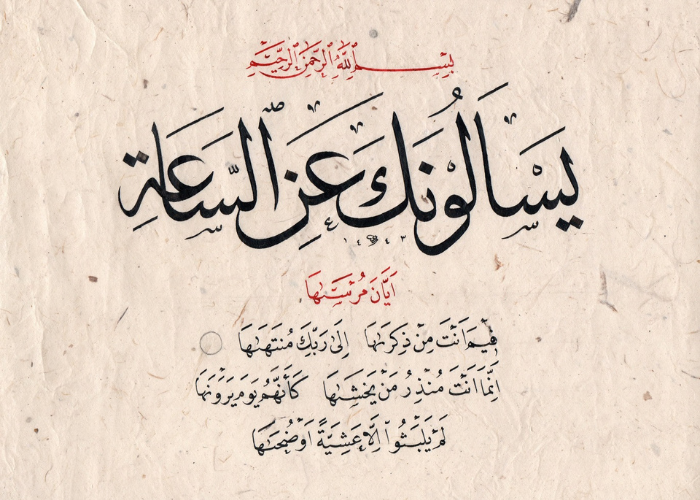 بِسْمِ ٱللَّهِ ٱلرَّحْمَنِ ٱلرَّحِيمِ
يَسْاَلُونَكَ عَنِ السَّاعَةِ
١٤٤٣
اَيَّانَ مُرْسَيٰهَا
فِيمَ اَنْتَ مِنْ ذِكْرَيٰهَا اِلَىٰ رَبِّكَ مُنْتَهَيٰهَا
اِنَّمَا اَنْتَ مُنْذِرُ مَنْ يَخْشَيٰهَا كَاَنَّهُمْ يَوْمَ يَرَوْنَهَا
لَمْ يَلْبَثُوا اِلَّا عَشِيَّةً اَوْ ضُحَيٰهَا